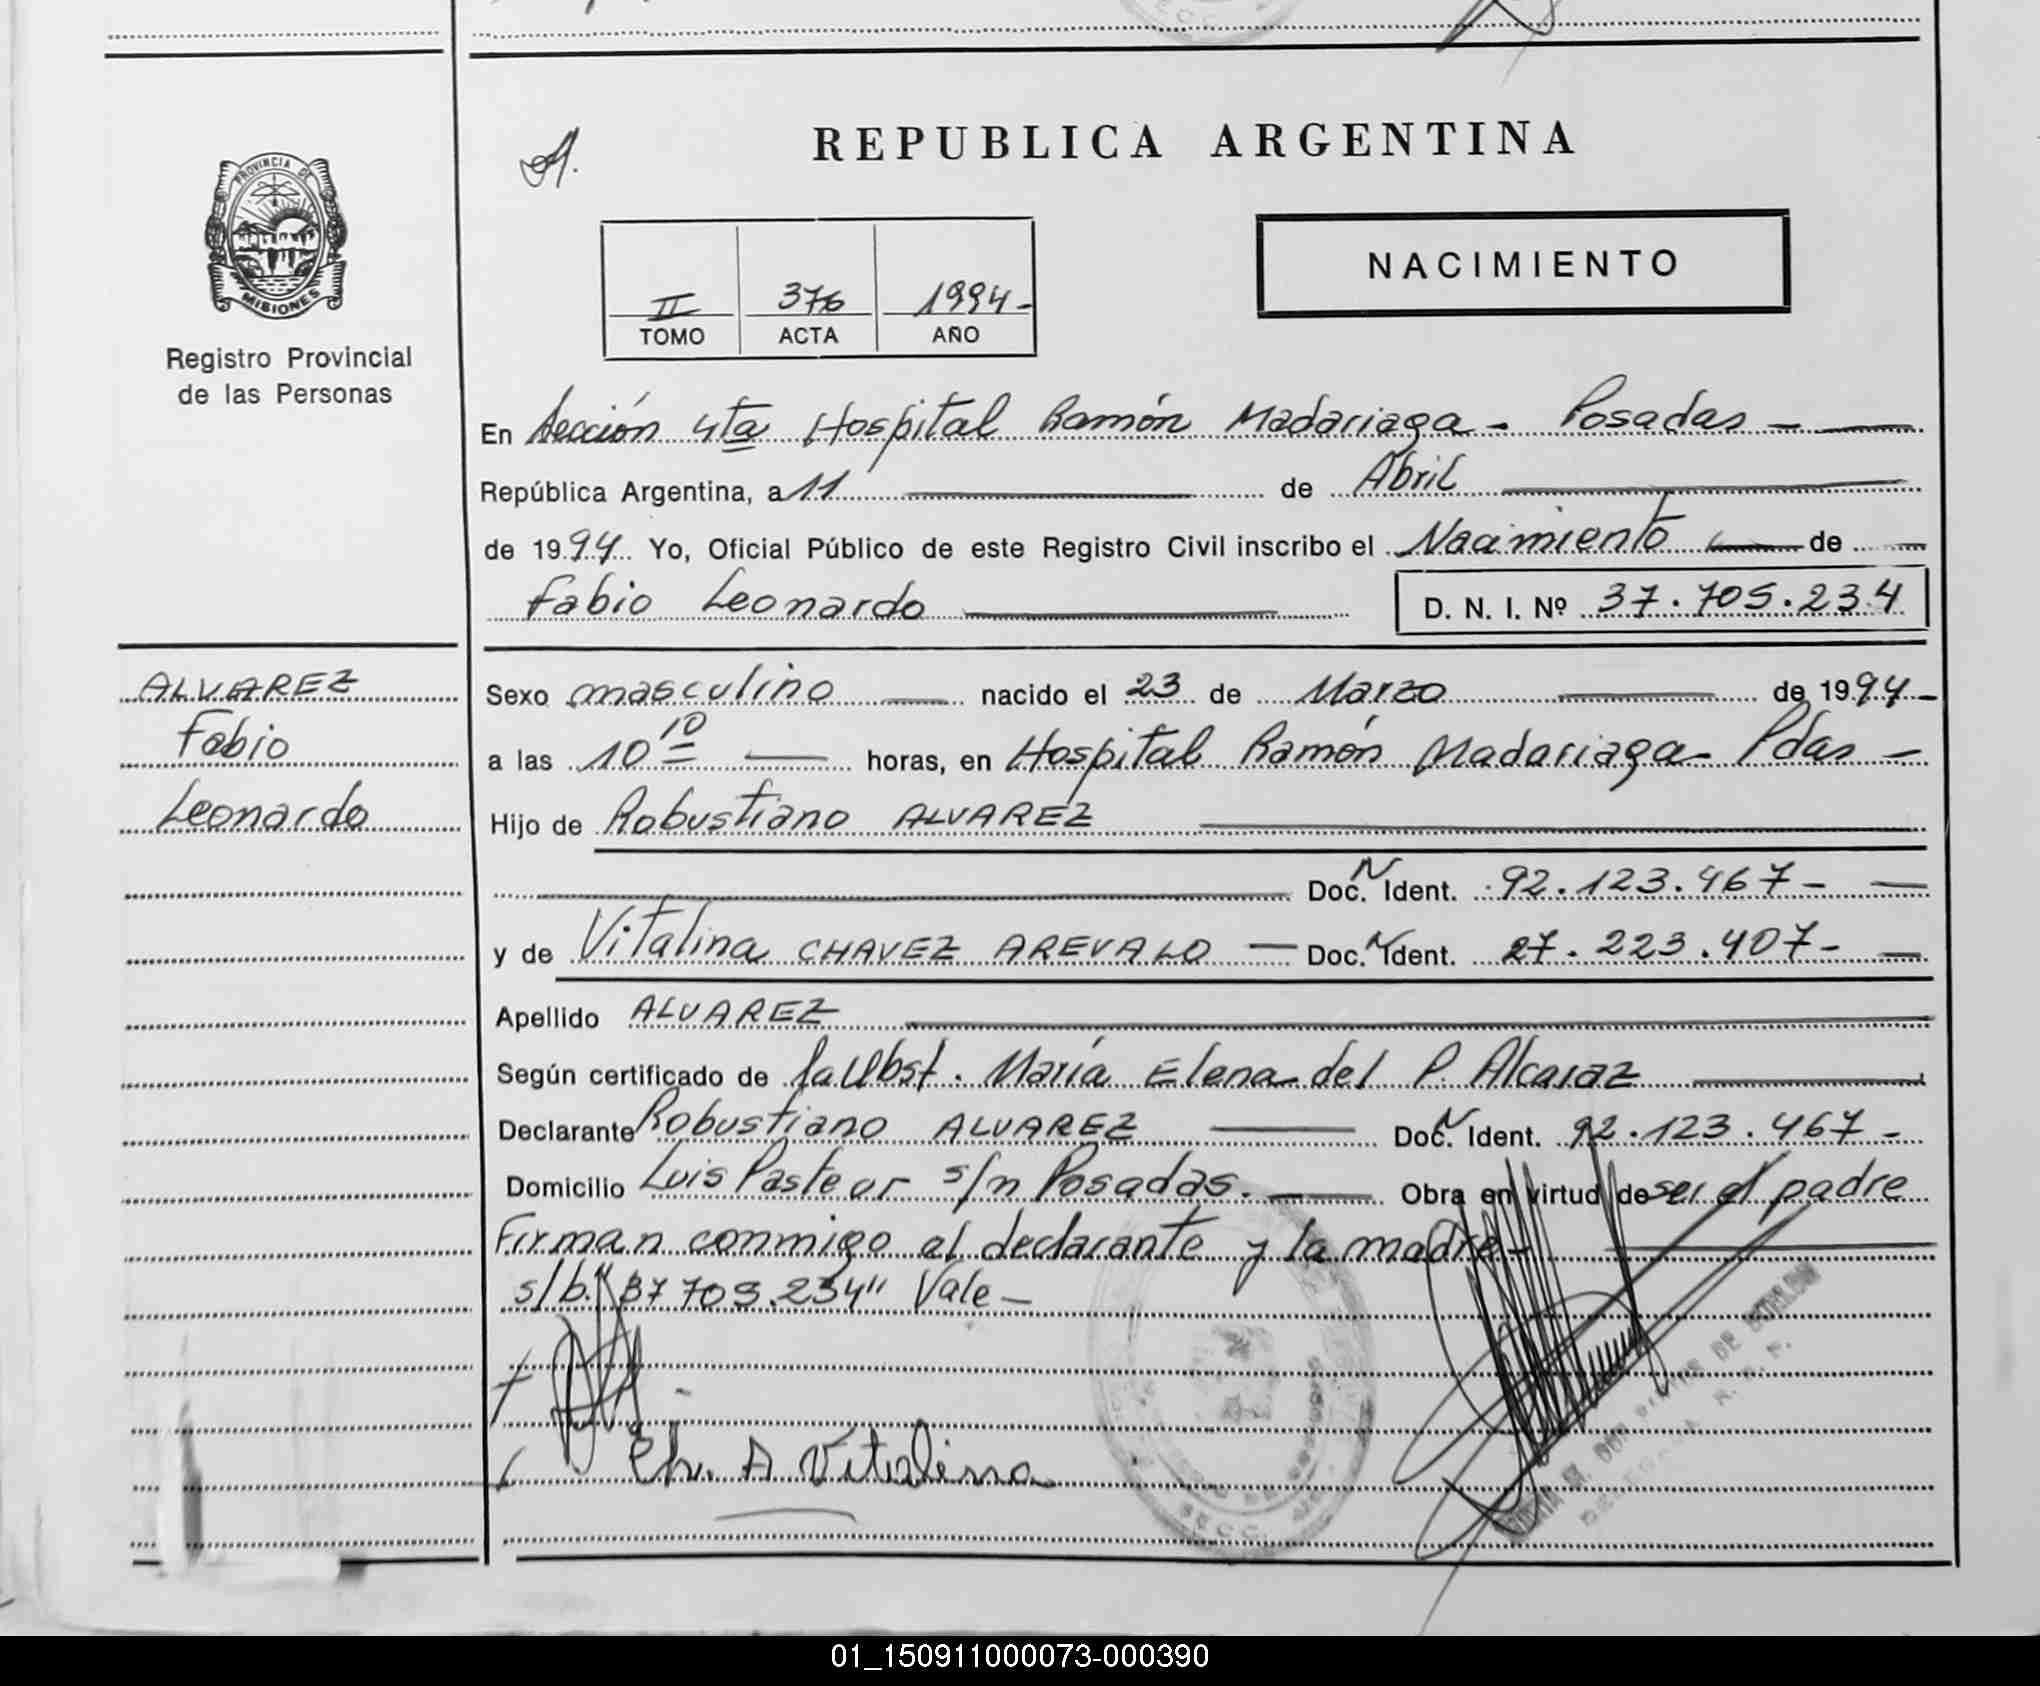 REPUBLICA ARGENTINA
PROVINCIA DE
MISIONES
Registro Provincial
de las Personas
II 376 1994-
TOMO ACTA AÑO
NACIMIENTO
En Sección 4ta Hospital Ramón Madariaga - Posadas -
República Argentina, a 11 de Abril
de 1994 Yo, Oficial Público de este Registro Civil inscribo el Nacimiento de
Fabio Leonardo D. N. I. Nº 37.705.234
ALVAREZ
Fabio
Leonardo
Sexo masculino nacido el 23 de Marzo de 1994-
a las 10 10 horas, en Hospital Ramón Madariaga - Pdas -
Hijo de Robustiano ALVAREZ
Doc. N Ident. 92.123.467-
y de Vitalina CHAVEZ AREVALO Doc. N Ident. 27.223.407-
Apellido ALVAREZ
Según certificado de la Obst. María Elena del P. Alcaraz
Declarante Robustiano ALVAREZ Doc. N Ident. 92.123.467-
Domicilio Luis Pasteur s/n Posadas. Obra en virtud de ser el padre
Firman conmigo el declarante y la madre-
s/b. "37 705.234" Vale-
Ch. A Vitalina
SECC.
01_150911000073-000390